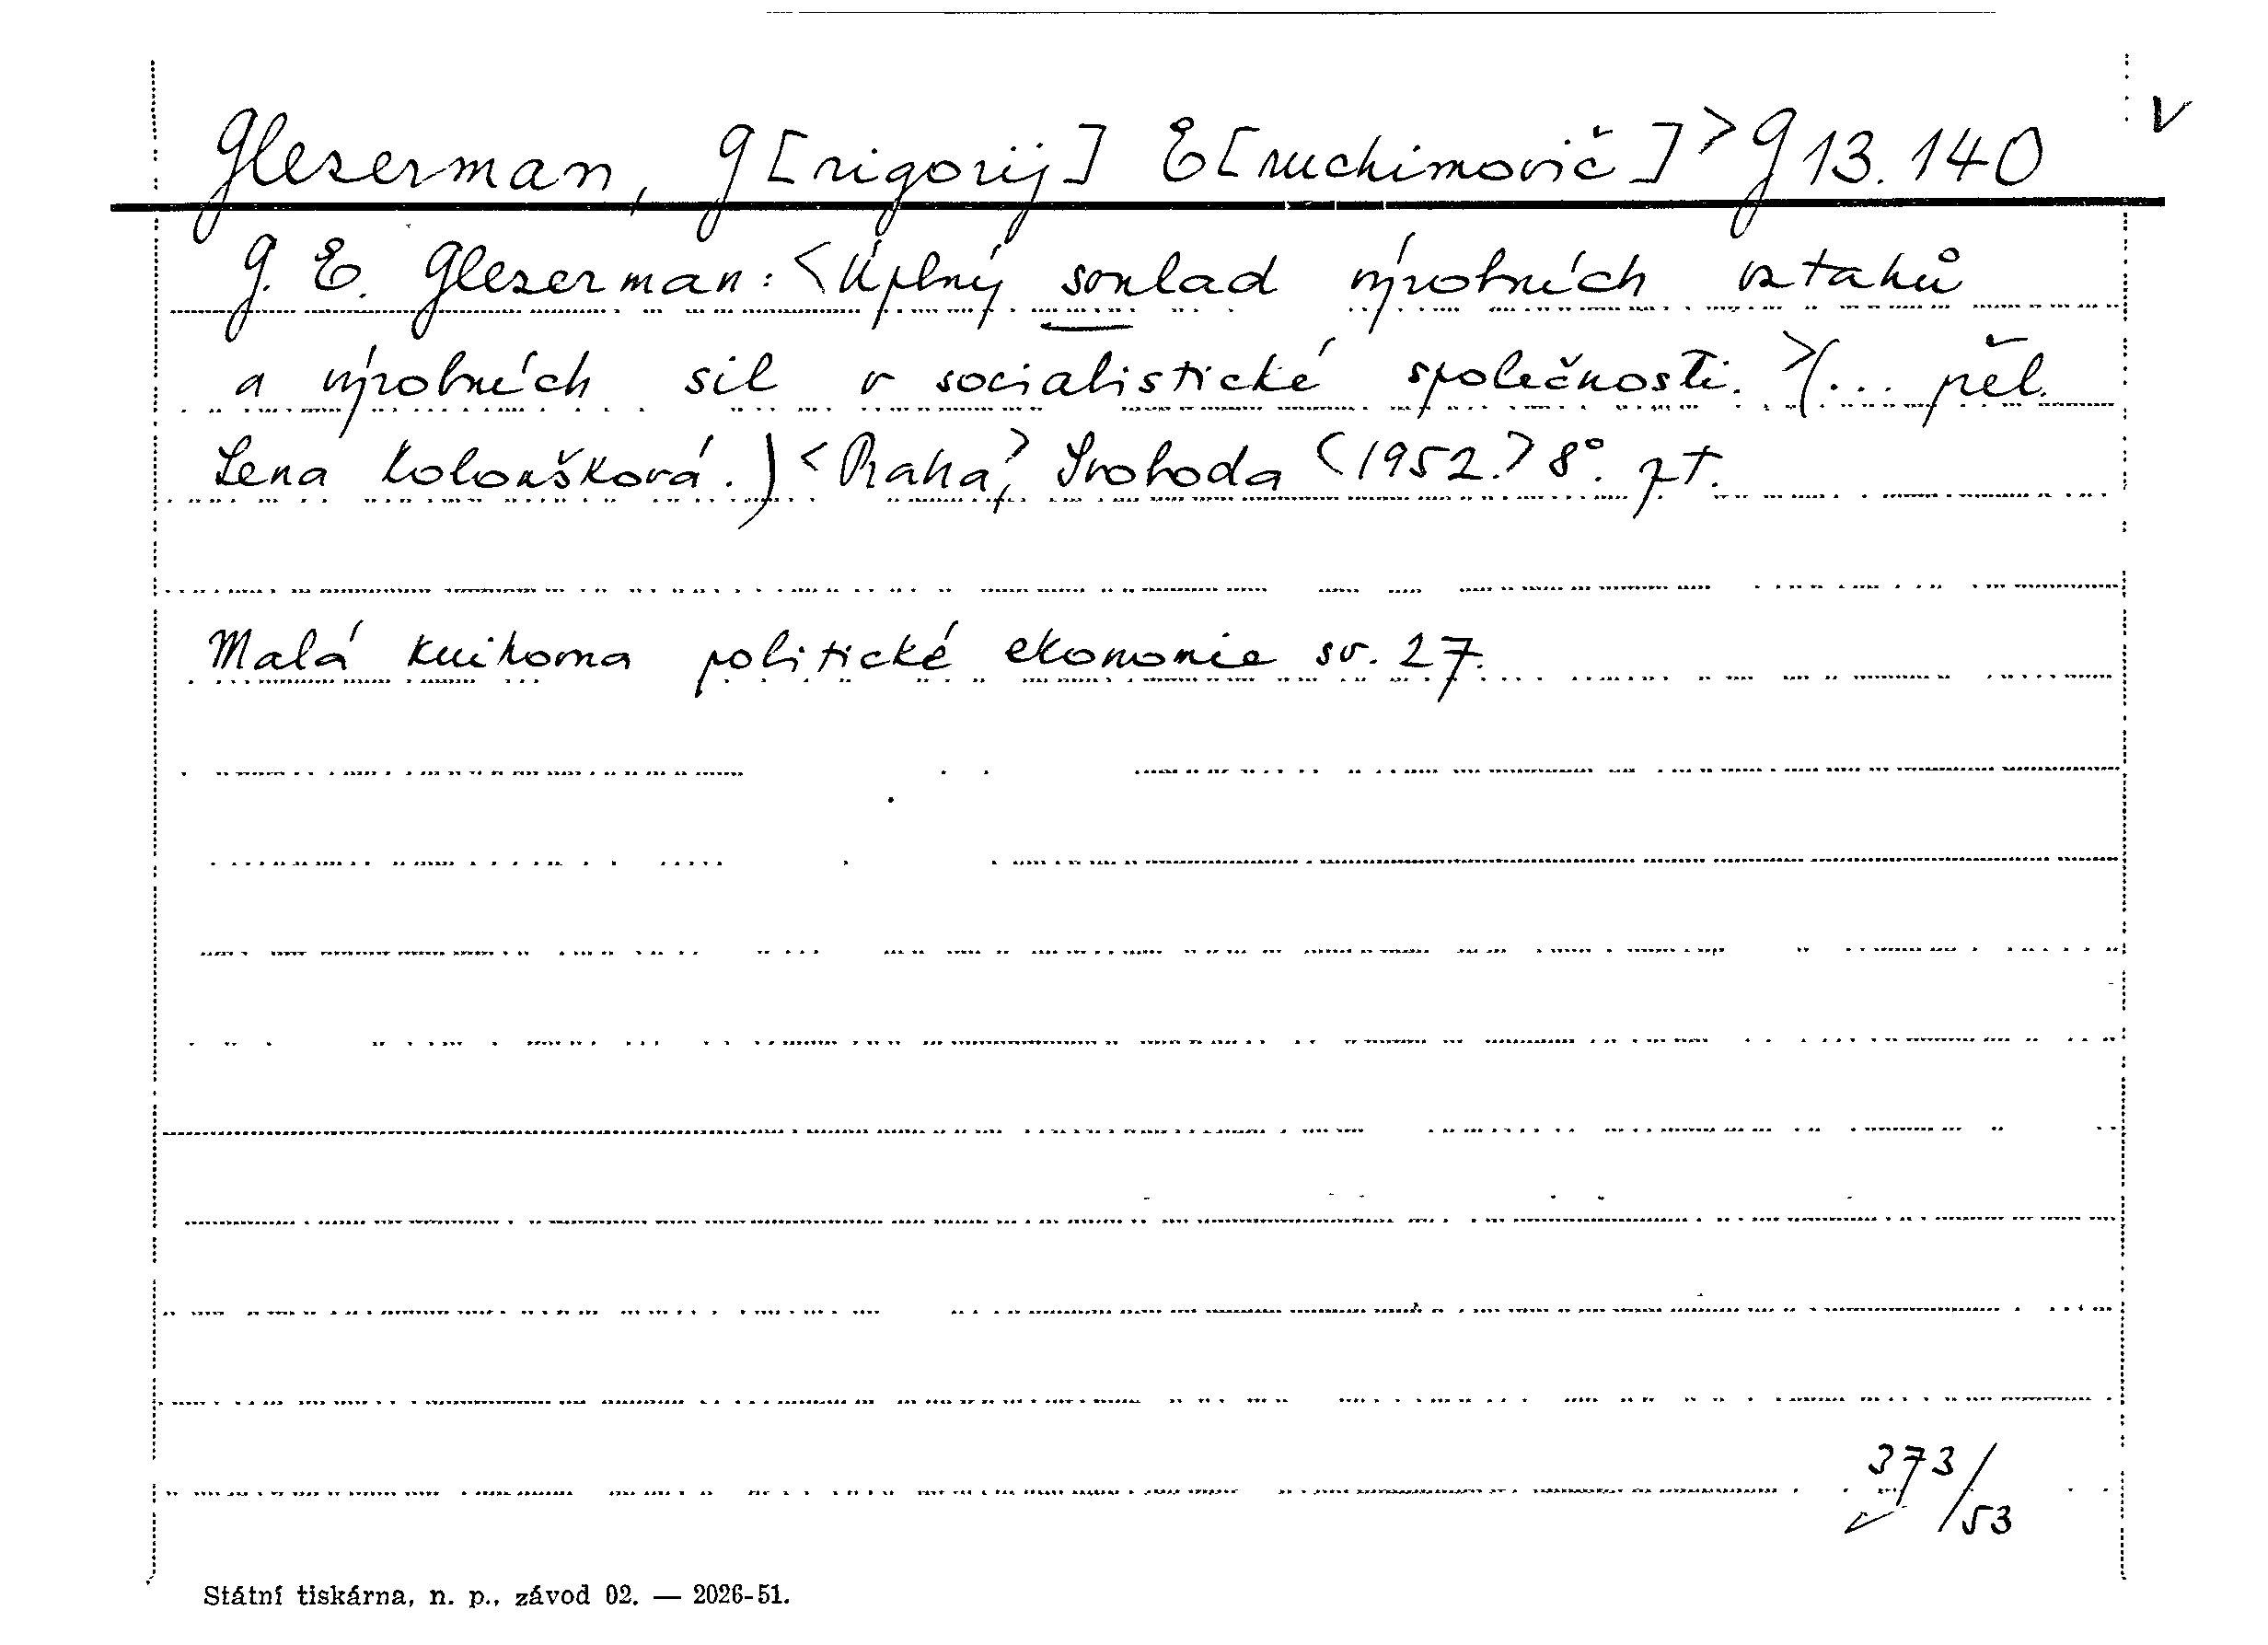 Glezerman, G[rigorij] E[ruchimovič]> G 13.140 v
G. E. Glezerman: <Úplný soulad výrobních vztahů
a výrobních sil v socialistické společnosti.>(... přel.
Lena Koloušková.) <Praha,> Svoboda <1952.> 8°. pt.
Malá knihovna politické ekonomie sv. 27.
373/53
Státní tiskárna, n. p., závod 02. — 2026-51.